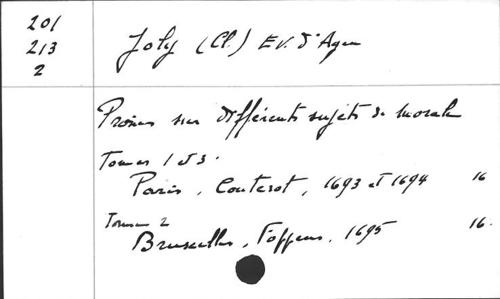 201
213
2
Joly (Cl.) Ev. d'Agen
Prônes sur différents sujets de morale
Tomes 1 et 3.
Paris, Couterot, 1693 et 1694 16
Tome 2
Bruxelles, Foppens, 1695 16.